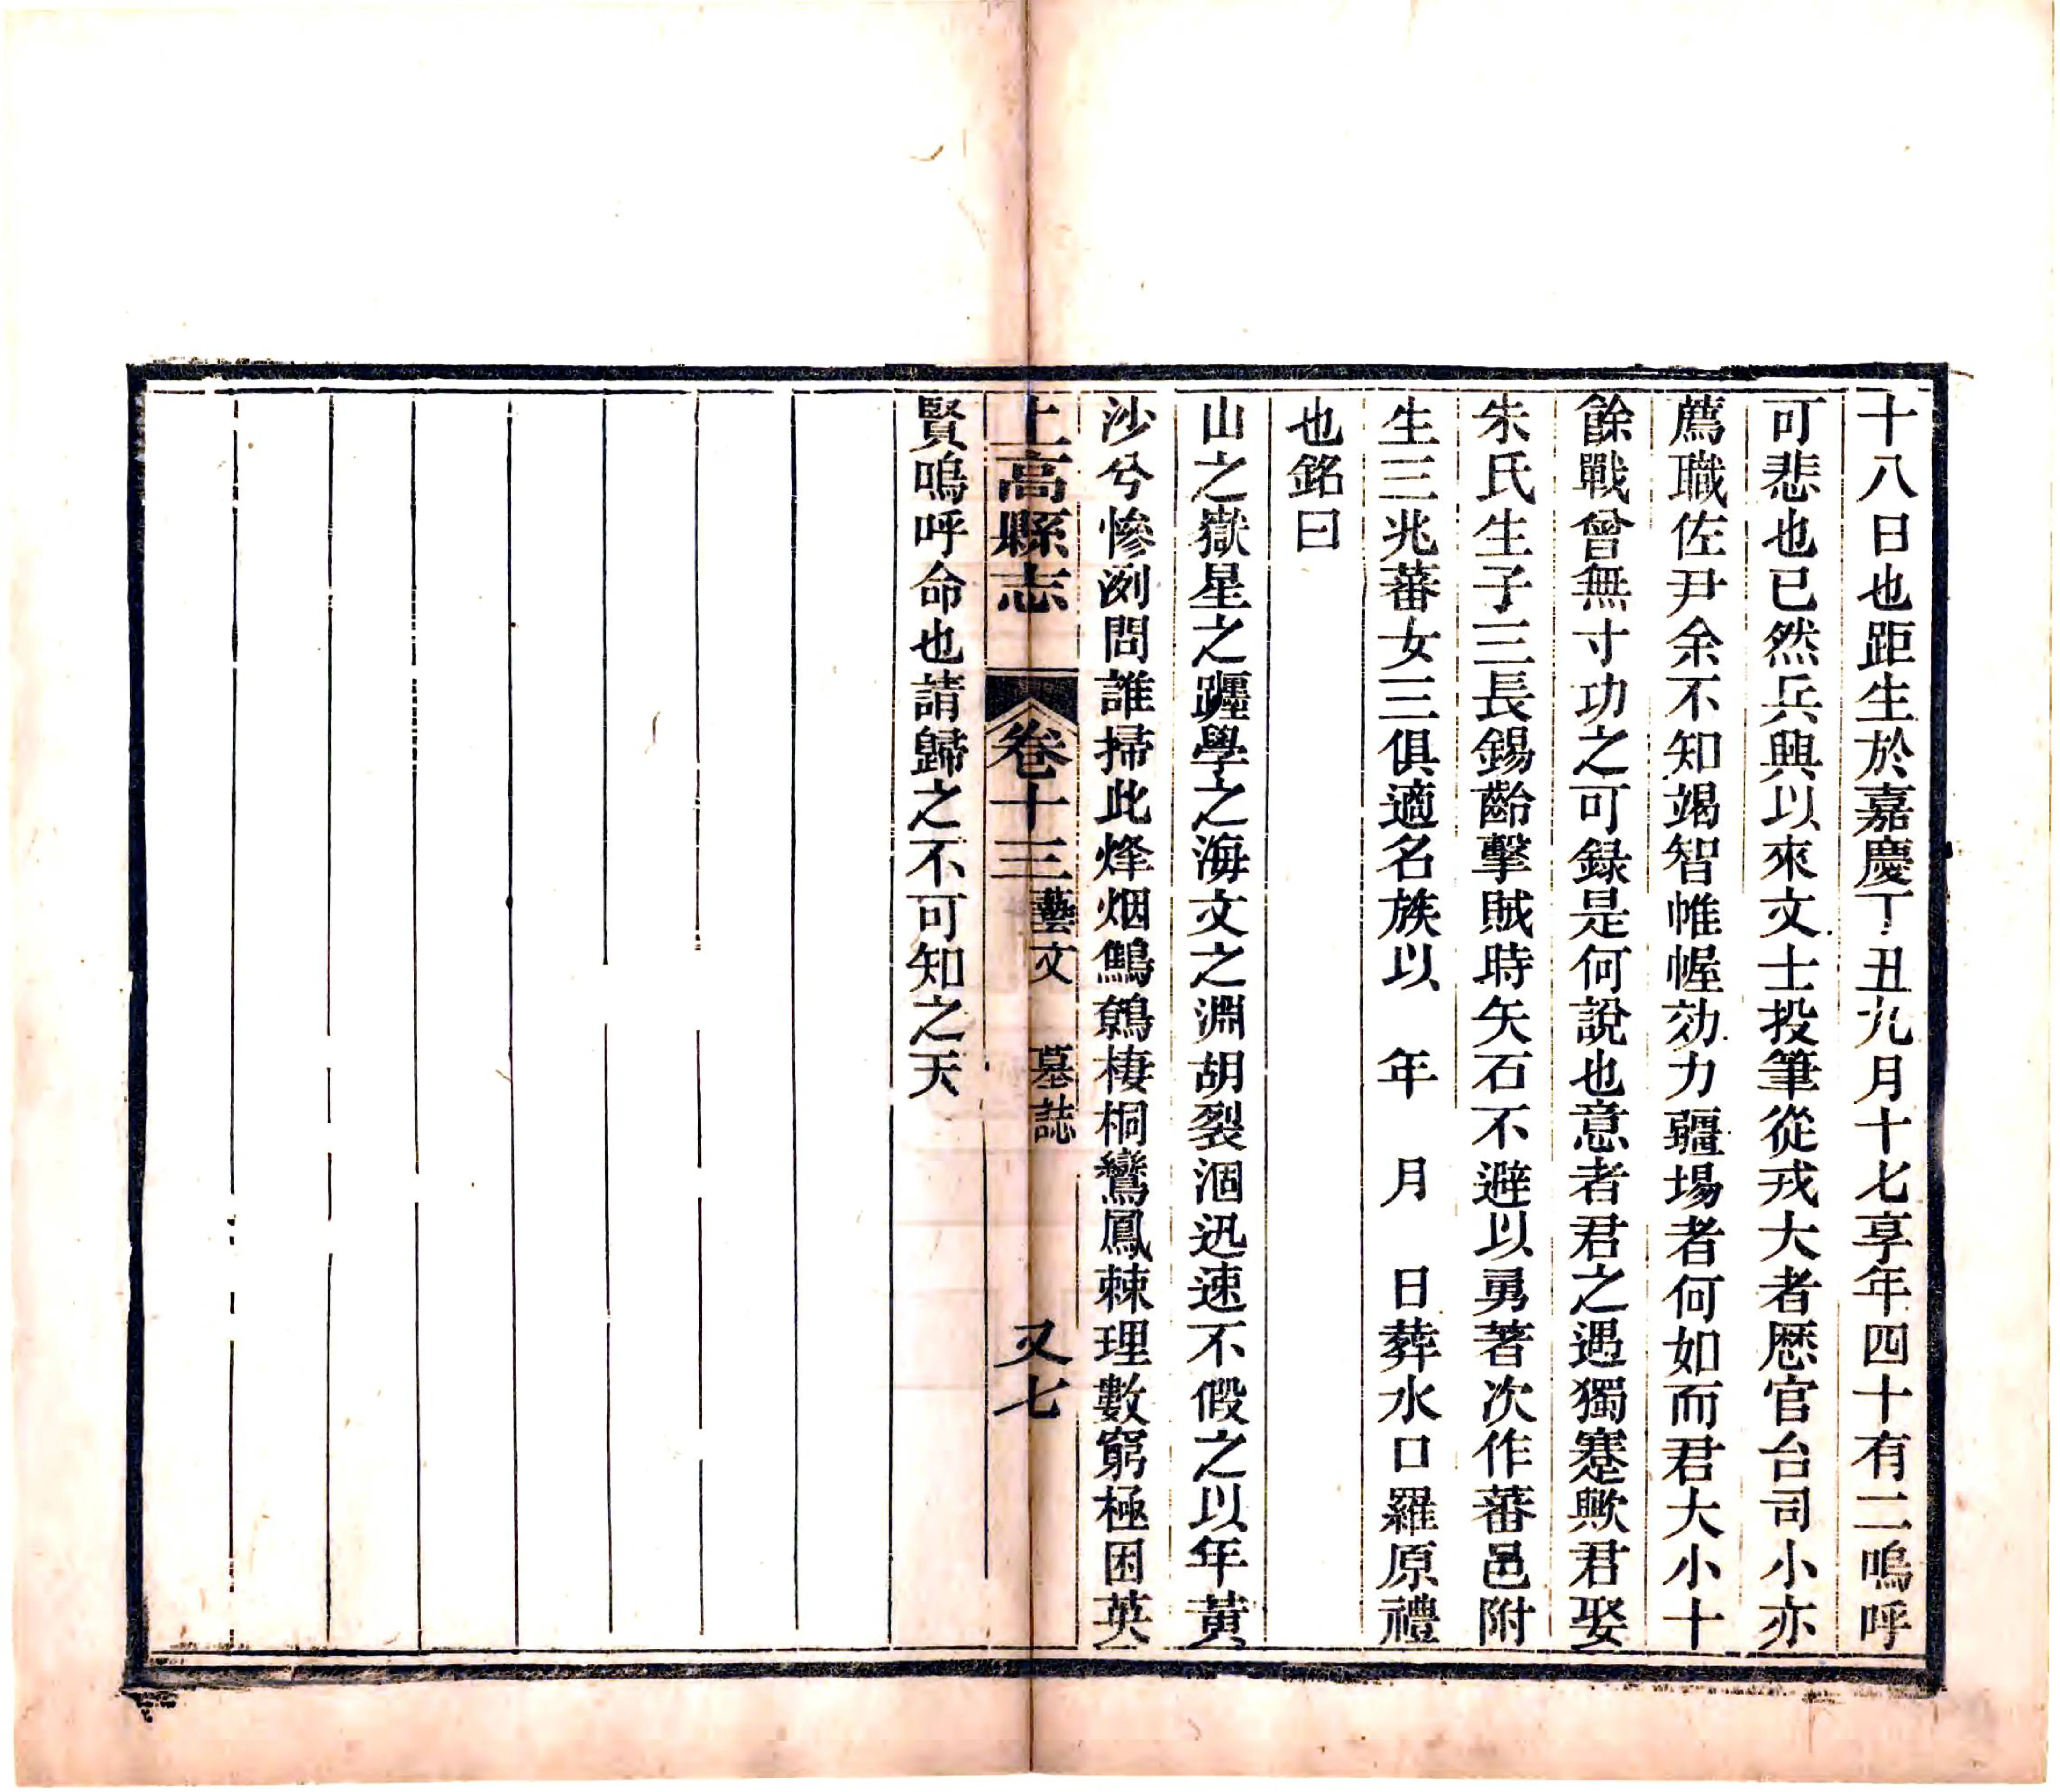 十八日也距生於嘉慶丁丑九月十七享年四十有二嗚呼
可悲也已然兵興以來文士投筆從戎大者歷官台司小亦
薦職佐尹余不知竭智帷幄効力疆場者何如而君大小十
餘戰曾無寸功之可録是何說也意者君之遇獨蹇歟君娶
朱氏生子三長錫齡擊賊時矢石不避以勇著次作蕃邑附
生三兆蕃女三俱適名族以　年　月　日葬水口羅原禮
也銘曰
山之嶽星之躔學之海文之淵胡裂涸迅速不假之以年黃
沙兮慘洌問誰掃此烽烟鷦鷯棲桐鸞鳳棘理數窮極困英
上高縣志　卷十三藝文　墓誌　又七
賢嗚呼命也請歸之不可知之天